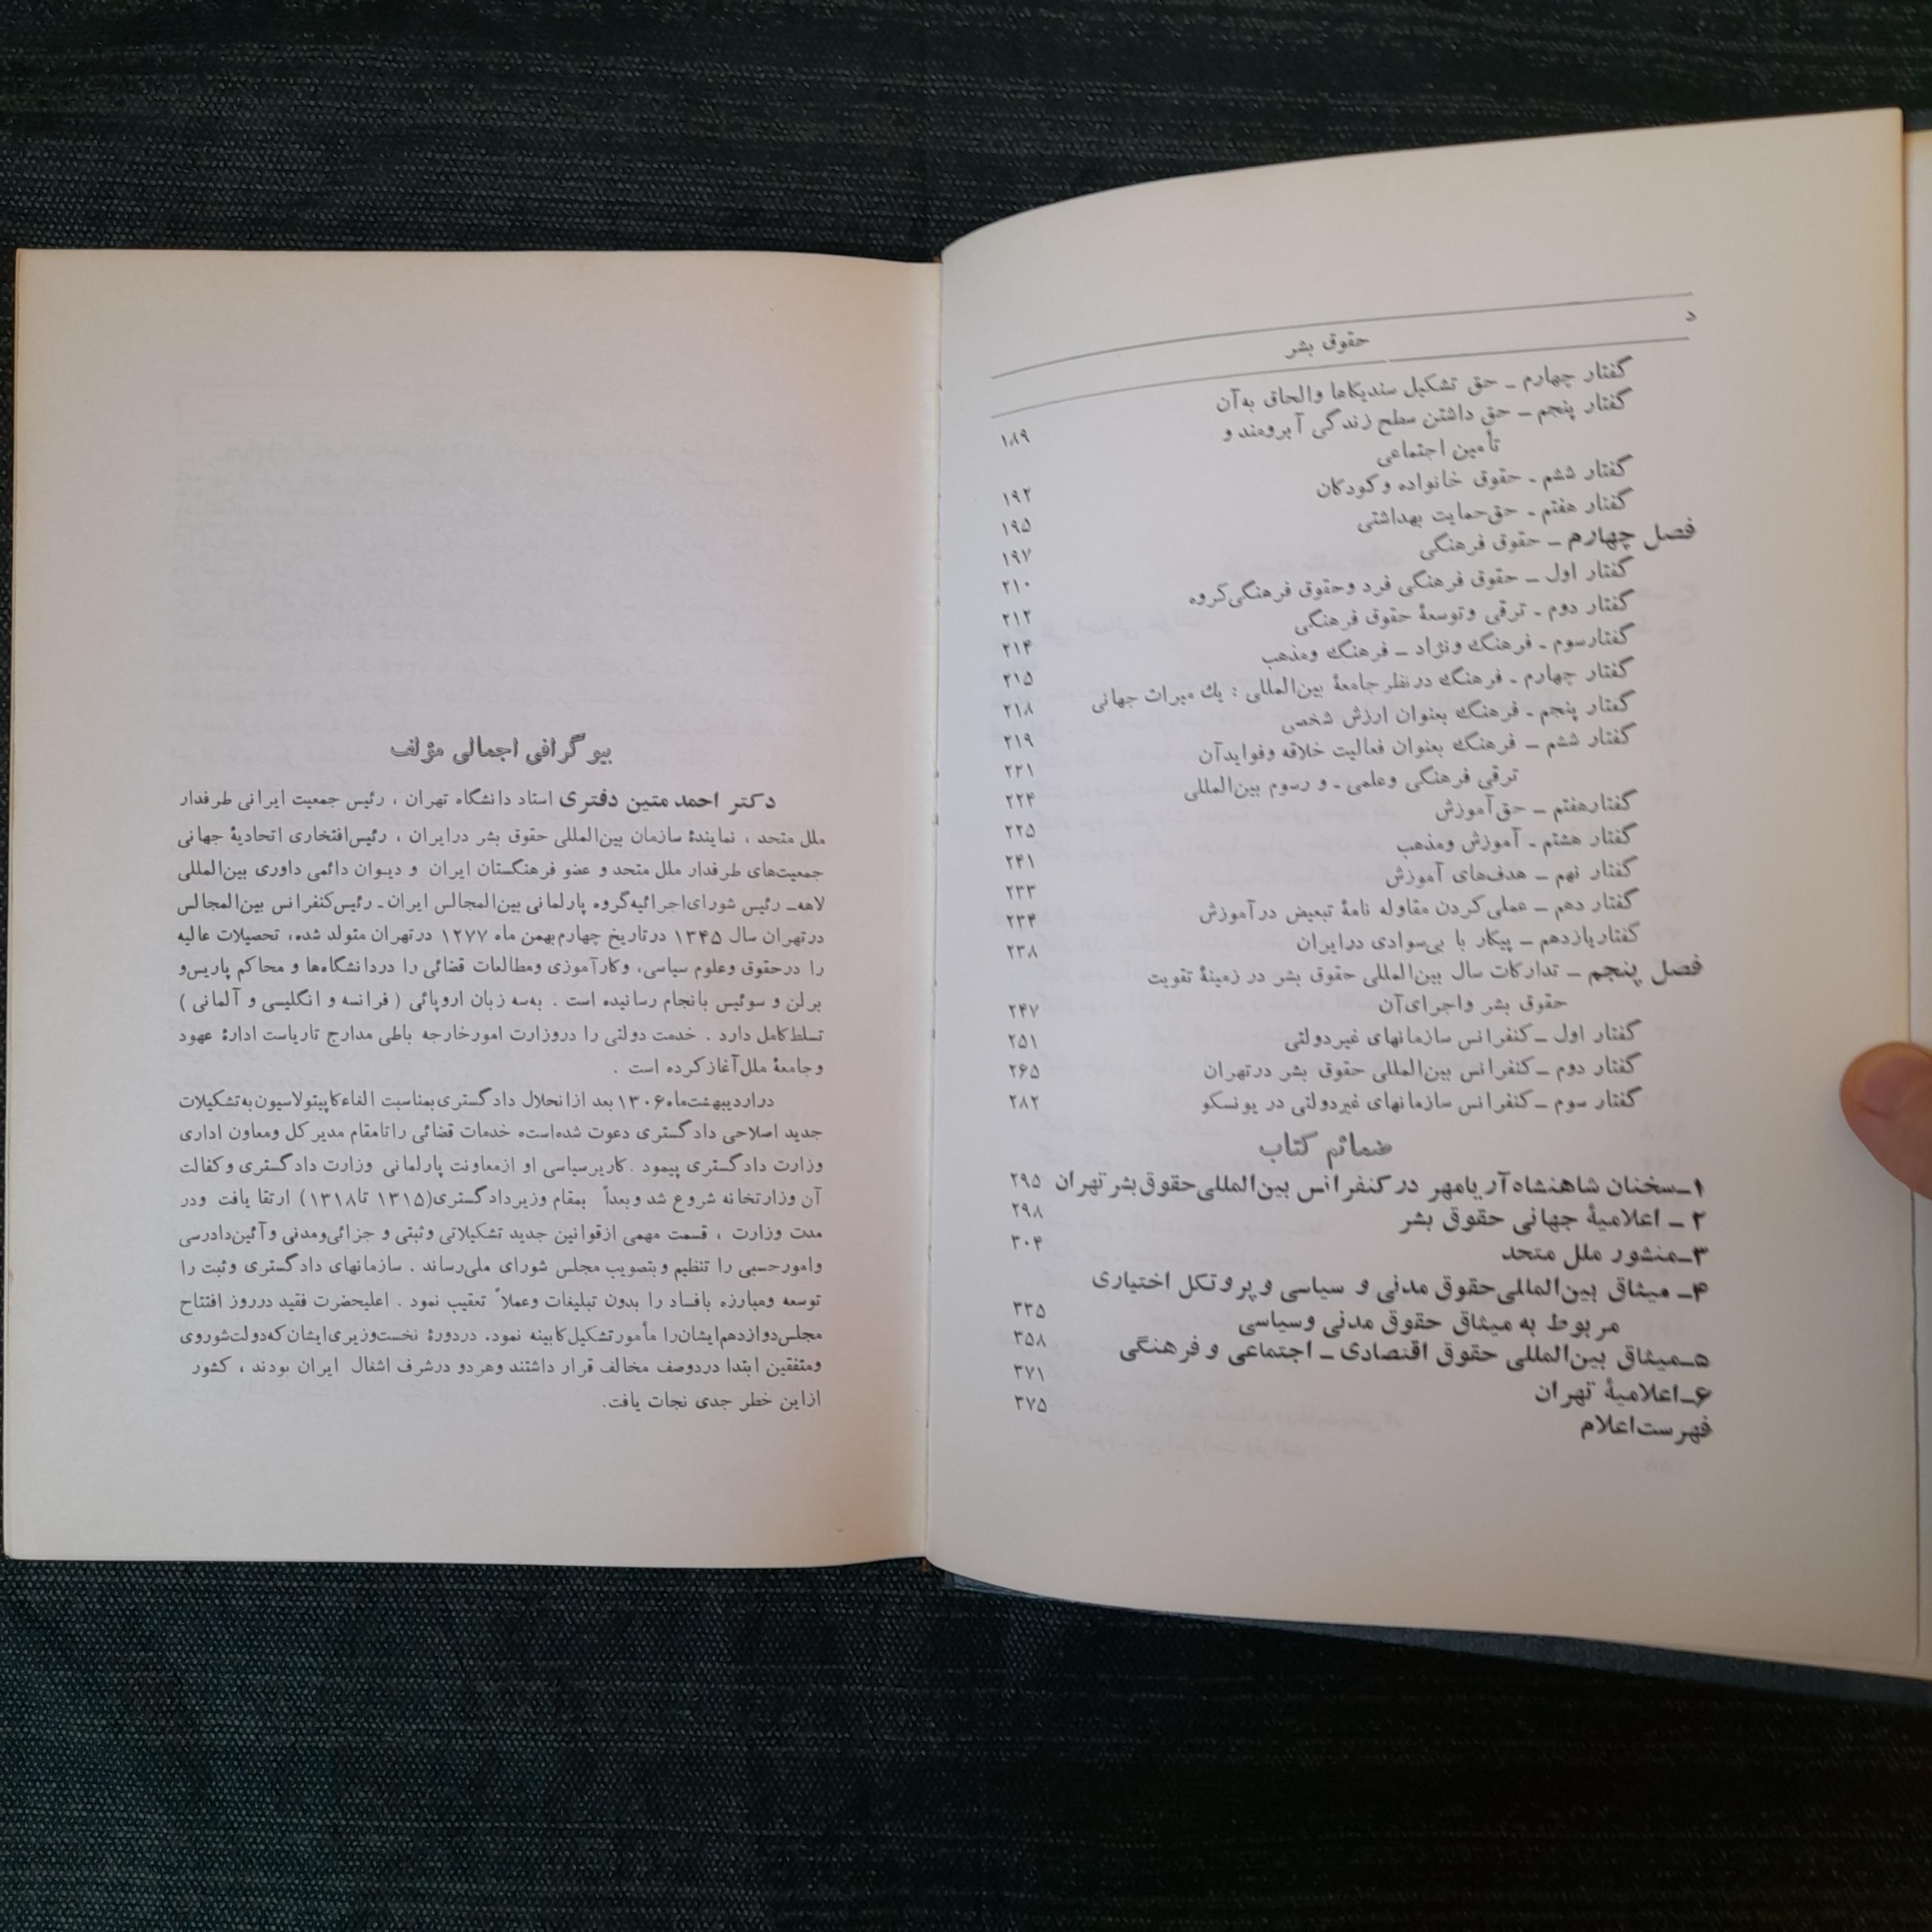 د
حقوق بشر
گفتار چهارم ـ حق تشکیل سندیکاها والحاق به‌آن
گفتار پنجم ـ حق داشتن سطح زندگی آبرومند و
تأمین اجتماعی ۱۸۹
گفتار ششم ـ حقوق خانواده وکودکان ۱۹۲
گفتار هفتم ـ حق‌حمایت بهداشتی ۱۹۵
فصل چهارم ـ حقوق فرهنگی ۱۹۷
گفتار اول ـ حقوق فرهنگی فرد وحقوق فرهنگی‌گروه ۲۱۰
گفتار دوم ـ ترقی وتوسعهٔ حقوق فرهنگی ۲۱۲
گفتارسوم ـ فرهنگ ونژاد ـ فرهنگ ومذهب ۲۱۴
گفتار چهارم ـ فرهنگ درنظر جامعهٔ بین‌المللی : یك میراث جهانی ۲۱۵
گفتار پنجم ـ فرهنگ بعنوان ارزش شخصی ۲۱۸
گفتار ششم ـ فرهنگ بعنوان فعالیت خلاقه وفوایدآن ۲۱۹
ترقی فرهنگی وعلمی ـ و رسوم بین‌المللی ۲۲۱
گفتارهفتم ـ حق‌آموزش ۲۲۴
گفتار هشتم ـ آموزش ومذهب ۲۲۵
گفتار نهم ـ هدف‌های آموزش ۲۴۱
گفتار دهم ـ عملی‌کردن مقاوله نامهٔ تبعیض درآموزش ۲۳۳
گفتاریازدهم ـ پیکار با بی‌سوادی درایران ۲۳۴
فصل پنجم ـ تدارکات سال بین‌المللی حقوق بشر در زمینهٔ تقویت ۲۳۸
حقوق بشر واجرای‌آن
گفتار اول ـکنفرانس سازمانهای غیردولتی ۲۴۷
گفتار دوم ـکنفرانس بین‌المللی حقوق بشر درتهران ۲۵۱
گفتار سوم ـکنفرانس سازمانهای غیردولتی در یونسکو ۲۶۵
۲۸۲
ضمائم کتاب
۱ـسخنان شاهنشاه‌آریامهر درکنفرانس بین‌المللی‌حقوق‌بشرتهران ۲۹۵
۲ ـ اعلامیهٔ جهانی حقوق بشر ۲۹۸
۳ـمنشور ملل متحد ۳۰۴
۴ـ میثاق بین‌المللی‌حقوق مدنی و سیاسی و پروتکل اختیاری
مربوط به میثاق حقوق مدنی وسیاسی ۳۳۵
۵ـمیثاق بین‌المللی حقوق اقتصادی ـ اجتماعی و فرهنگی ۳۵۸
۶ـاعلامیهٔ تهران ۳۷۱
فهرست‌اعلام ۳۷۵
بیوگرافی اجمالی مؤلف
دکتر احمد متین دفتری استاد دانشگاه تهران ، رئیس جمعیت ایرانی طرفدار
ملل متحد ، نمایندهٔ سازمان بین‌المللی حقوق بشر درایران ، رئیس‌افتخاری اتحادیهٔ جهانی
جمعیت‌های طرفدار ملل متحد و عضو فرهنگستان ایران و دیوان دائمی داوری بین‌المللی
لاهه ـ رئیس شورای‌اجرائیه‌گروه پارلمانی بین‌المجالس ایران ـ رئیس‌کنفرانس بین‌المجالس
درتهران سال ۱۳۴۵ درتاریخ چهارم‌بهمن ماه ۱۲۷۷ درتهران متولد شده، تحصیلات عالیه
را درحقوق وعلوم سیاسی، وکارآموزی ومطالعات قضائی را دردانشگاه‌ها و محاکم پاریس‌و
برلن و سوئیس بانجام رسانیده است . به‌سه زبان اروپائی ( فرانسه و انگلیسی و آلمانی )
تسلط‌کامل دارد . خدمت دولتی را دروزارت امورخارجه باطی مدارج تاریاست ادارهٔ عهود
وجامعهٔ ملل‌آغازکرده است .
دراردیبهشت‌ماه۱۳۰۶ بعد ازانحلال دادگستری‌بمناسبت الغاءکاپیتولاسیون‌به‌تشکیلات
جدید اصلاحی دادگستری دعوت شده‌است‌ خدمات قضائی راتامقام مدیرکل ومعاون اداری
وزارت دادگستری پیمود .کاریرسیاسی او ازمعاونت پارلمانی وزارت دادگستری وکفالت
آن وزارتخانه شروع شد وبعداً بمقام وزیردادگستری(۱۳۱۵ تا۱۳۱۸) ارتقا یافت ودر
مدت وزارت ، قسمت مهمی ازقوانین جدید تشکیلاتی وثبتی و جزائی‌ومدنی وآئین‌دادرسی
وامورحسبی را تنظیم وبتصویب مجلس شورای ملی‌رساند . سازمانهای دادگستری وثبت را
توسعه ومبارزه بافساد را بدون تبلیغات وعملاً تعقیب نمود . اعلیحضرت فقید درروز افتتاح
مجلس‌دوازدهم‌ایشان‌را مأمورتشکیل‌کابینه نمود، دردورهٔ نخست‌وزیری‌ایشان‌که‌دولت‌شوروی
ومتفقین ابتدا دردوصف مخالف قرار داشتند وهردو درشرف اشغال ایران بودند ، کشور
ازاین خطر جدی نجات یافت.